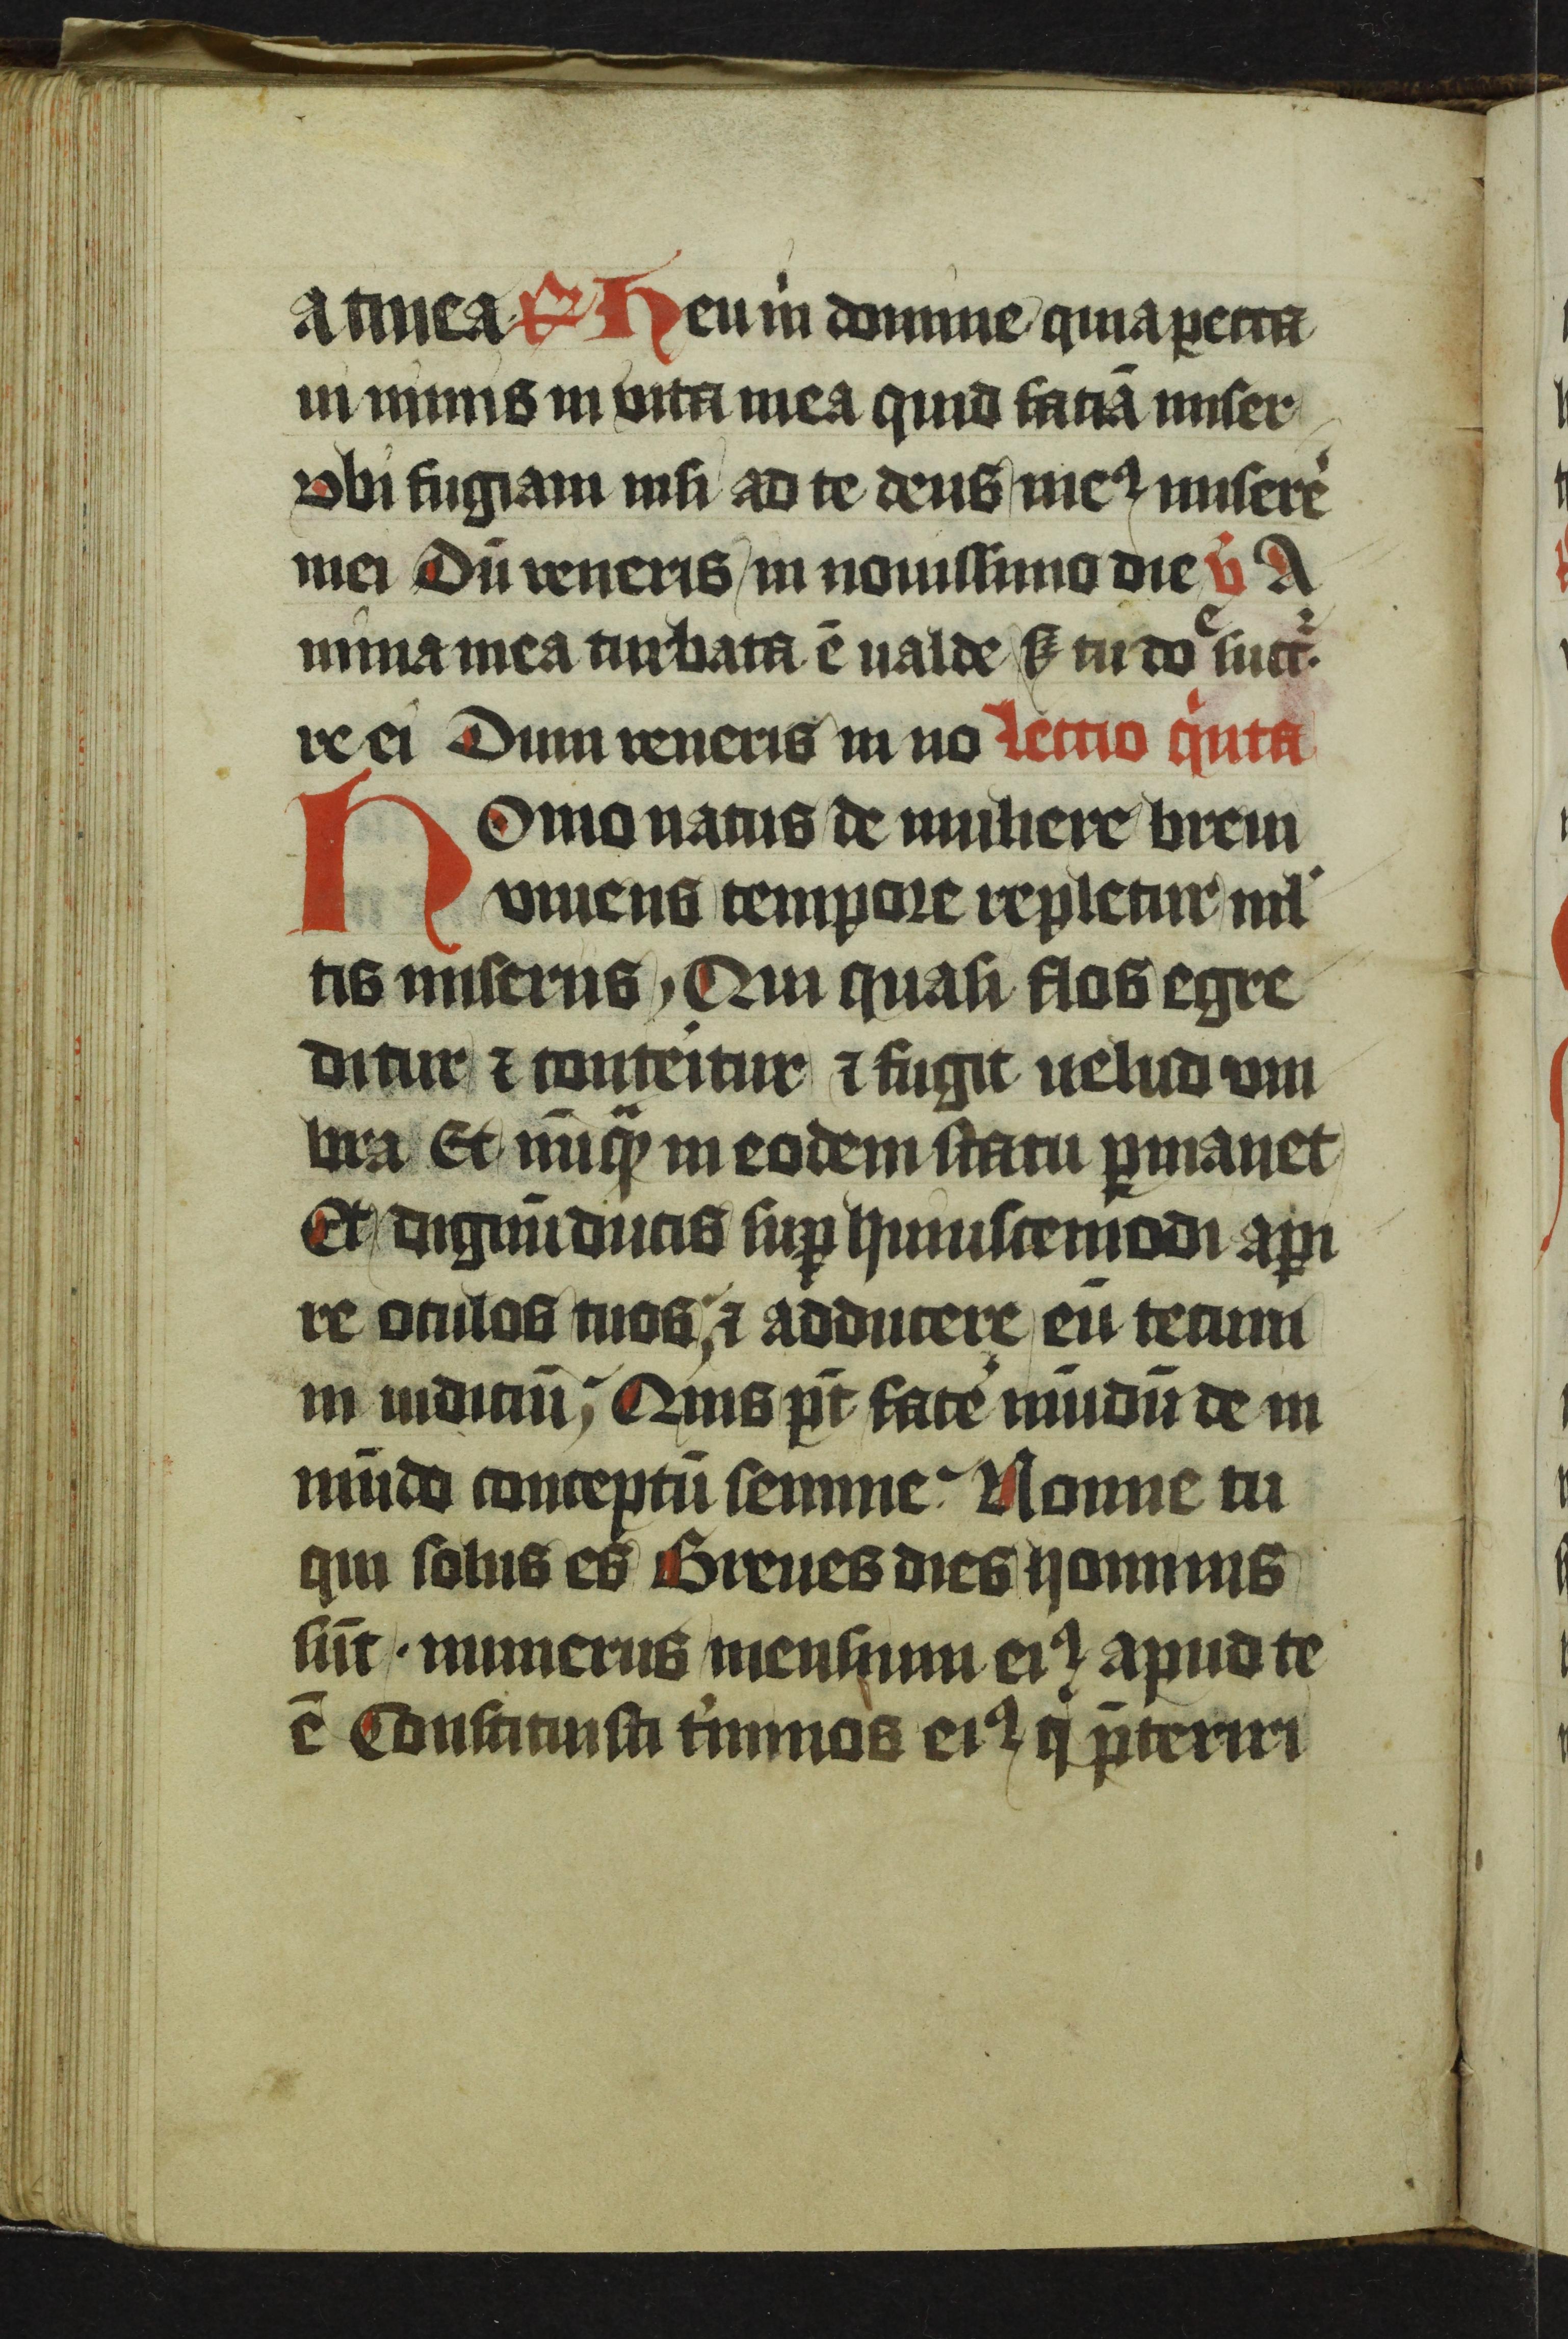 a tinea ℟ Heu m̅ domine quia pecca
ui nimis in uita mea quid faciā miser
vbi fugiam nisi ad te deus meꝰ miserē
mei Dū veneris in nouissimo die ℣ A
nima mea turbata ē ualde sꝫ tu doe succr̄
re ei Dum veneris in no Lectio qͥnta
Homo natus de muliere breui
viuens tempore repletur ml̓
tis miseriis, Qui quasi flos egre
ditur ⁊ conteritur ⁊ fugit uelud vm
bra Et nūqͣꝫ in eodem statu ꝑmanet
Et dignū ducis suꝑ huiuscemodi aꝑi
re oculos tuos, ⁊ adducere eū tecum
in iudiciū; Quis pt̄ face͛ mūdū de in
mūdo conceptū semine. Nonne tu
qui solus es Breues dies hominis
sūt · numerus mensium eiꝰ apud te
ē Constituisti t͛minos eiꝰ qͥ p̄teriri